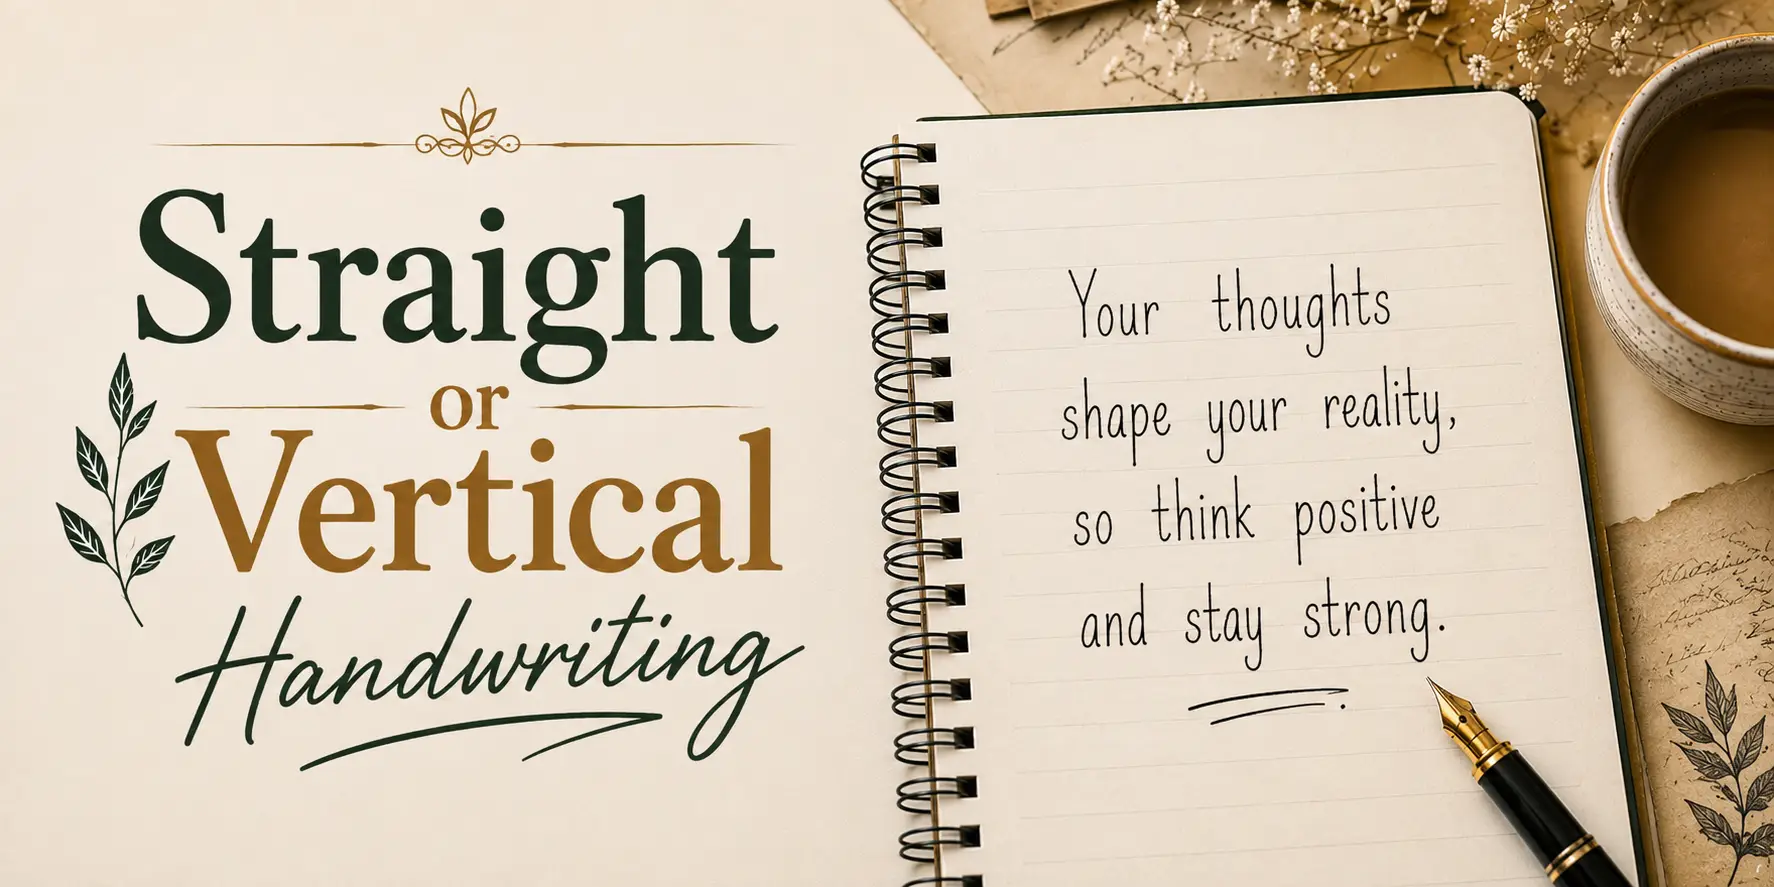 Straight
or
Vertical
Handwriting
Your thoughts
shape your reality,
so think positive
and stay strong.